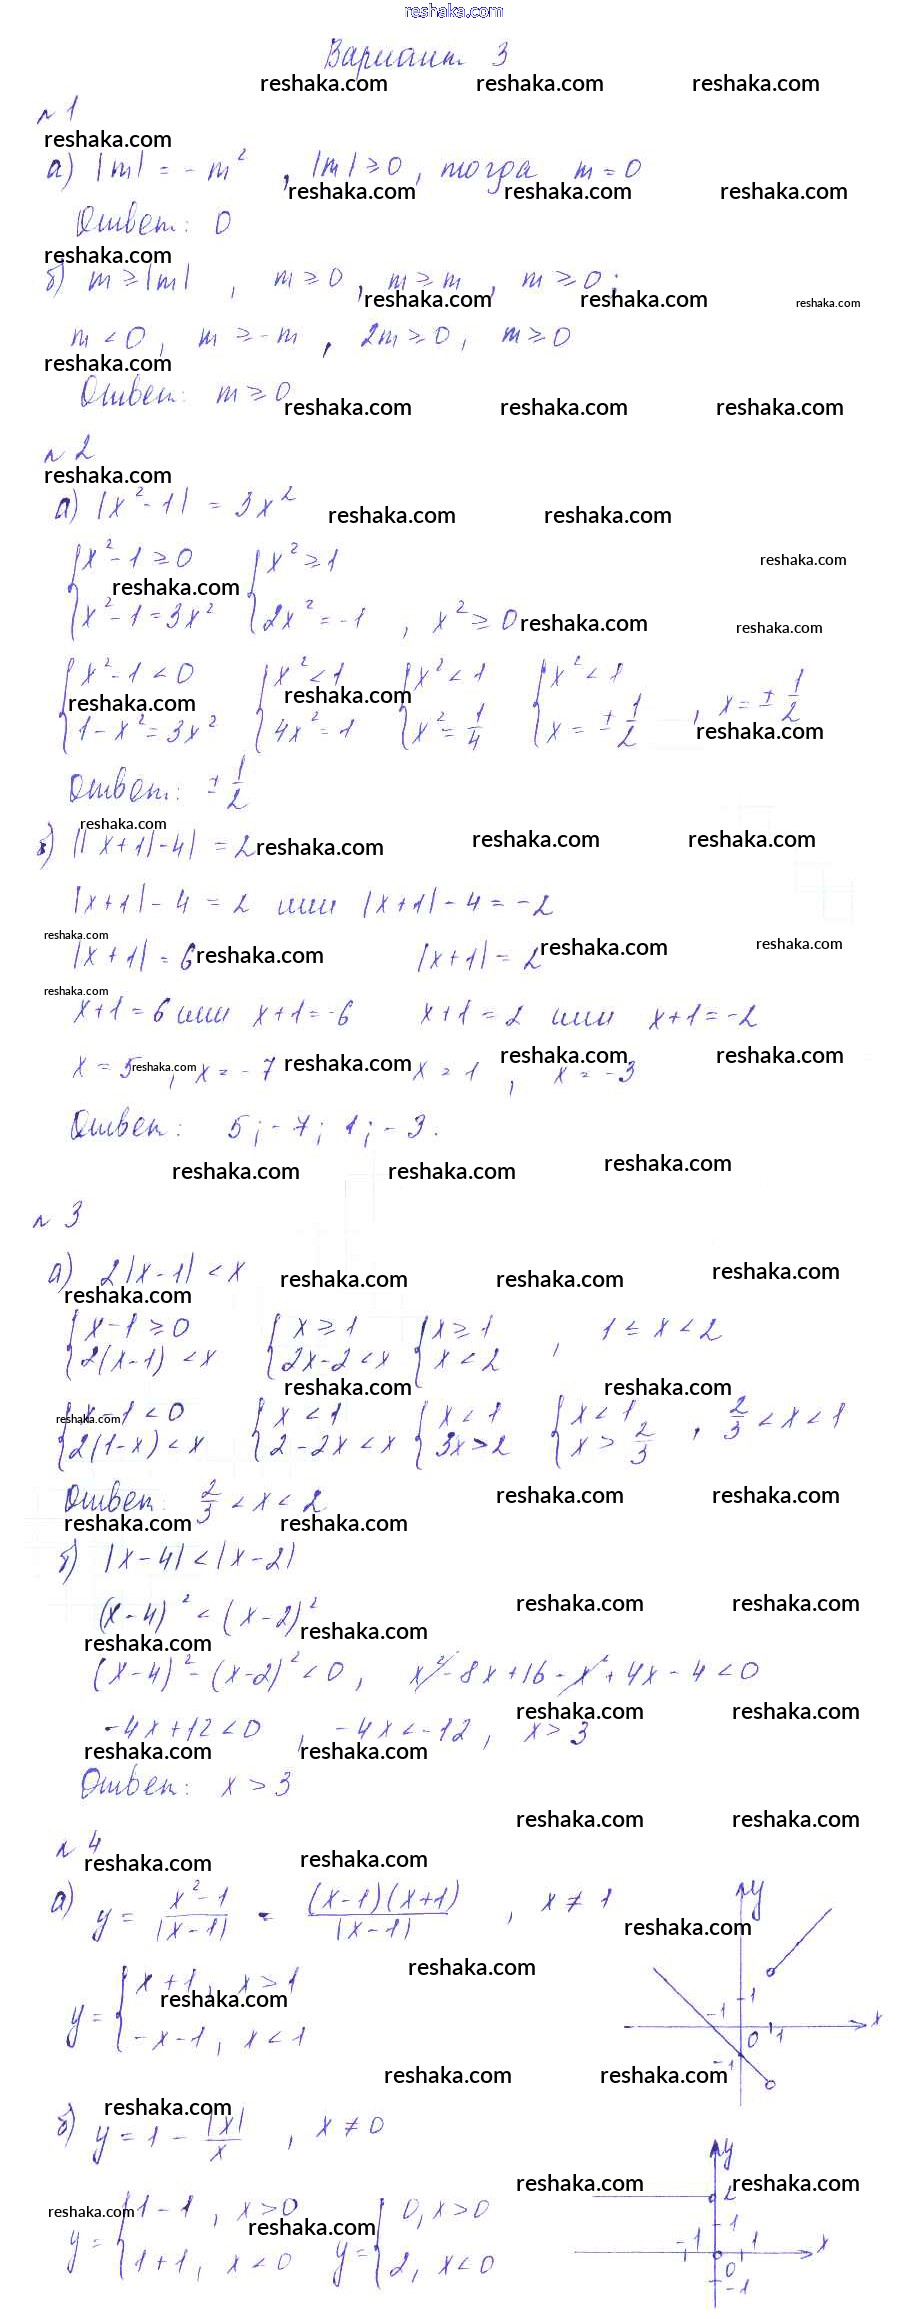 reshaka.com
Вариант 3
reshaka.com reshaka.com reshaka.com
№1
reshaka.com
а) |m| = -m², |m| ≥ 0, тогда m = 0
reshaka.com reshaka.com reshaka.com
Ответ: 0
reshaka.com
б) m ≥ |m|, m ≥ 0, m ≥ m, m ≥ 0;
reshaka.com reshaka.com reshaka.com
m < 0, m ≥ -m, 2m ≥ 0, m ≥ 0
reshaka.com
Ответ: m ≥ 0
reshaka.com reshaka.com reshaka.com
№2
reshaka.com
а) |x² - 1| = 3x²
reshaka.com reshaka.com
{x² - 1 ≥ 0 {x² ≥ 1
reshaka.com
reshaka.com
{x² - 1 = 3x² {2x² = -1, x² ≥ 0
reshaka.com reshaka.com
{x² - 1 < 0 {x² < 1 {x² < 1 {x² < 1
reshaka.com reshaka.com
{1 - x² = 3x² {4x² = 1 {x² = 1/4 {x = ± 1/2, x = ± 1/2
reshaka.com
Ответ: ± 1/2
reshaka.com
б) ||x+1| - 4| = 2
reshaka.com reshaka.com reshaka.com
|x+1| - 4 = 2 или |x+1| - 4 = -2
reshaka.com
|x+1| = 6 |x+1| = 2
reshaka.com reshaka.com reshaka.com
reshaka.com
x+1 = 6 или x+1 = -6 x+1 = 2 или x+1 = -2
x = 5, x = -7 x = 1, x = -3
reshaka.com reshaka.com reshaka.com reshaka.com
Ответ: 5; -7; 1; -3.
reshaka.com reshaka.com reshaka.com
№3
а) 2|x-1| < x
reshaka.com reshaka.com reshaka.com reshaka.com
{x-1 ≥ 0 {x ≥ 1 {x ≥ 1, 1 ≤ x < 2
{2(x-1) < x {2x-2 < x {x < 2
reshaka.com reshaka.com
{x-1 < 0 {x < 1 {x < 1 {x < 1, 2/3 < x < 1
reshaka.com
{2(1-x) < x {2-2x < x {3x > 2 {x > 2/3
Ответ: 2/3 < x < 2
reshaka.com reshaka.com
reshaka.com reshaka.com
б) |x-4| < |x-2|
(x-4)² < (x-2)²
reshaka.com reshaka.com
reshaka.com reshaka.com
(x-4)² - (x-2)² < 0, x² - 8x + 16 - x² + 4x - 4 < 0
reshaka.com reshaka.com
-4x + 12 < 0, -4x < -12, x > 3
reshaka.com reshaka.com
Ответ: x > 3
reshaka.com reshaka.com
№4
reshaka.com reshaka.com
а) y = x²-1/|x-1| = (x-1)(x+1)/|x-1|, x ≠ 1
y
reshaka.com
reshaka.com
y = {x+1, x > 1
reshaka.com
{-x-1, x < 1
-1 1 0 1 x
-1
reshaka.com reshaka.com
reshaka.com
б) y = 1 - |x|/x, x ≠ 0
y
reshaka.com reshaka.com
2
reshaka.com
y = {1-1, x > 0 y = {0, x > 0
reshaka.com
{1+1, x < 0 {2, x < 0
-1 1 1 x
0
-1